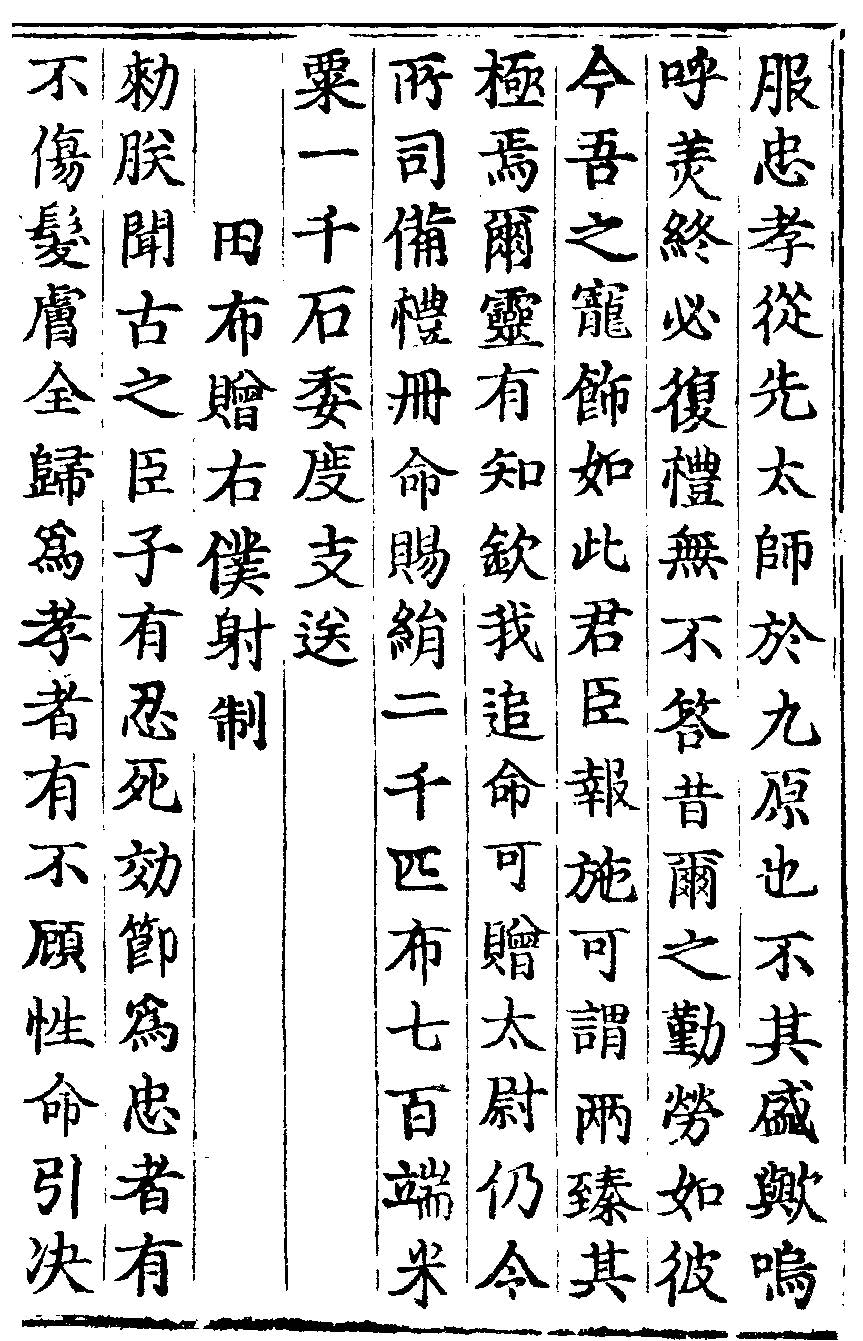 服忠孝從先太師於九原也不其盛歟嗚
呼羙終必復禮無不答昔爾之勤勞如彼
今吾之寵飾如此君臣報施可謂兩臻其
極焉爾靈有知欽我追命可贈太尉仍令
所司備禮冊命賜絹二千匹布七百端米
粟一千石委度支送
田布贈右僕射制
勑朕聞古之臣子有忍死効節爲忠者有
不傷髮膚全歸爲孝者有不顧性命引决